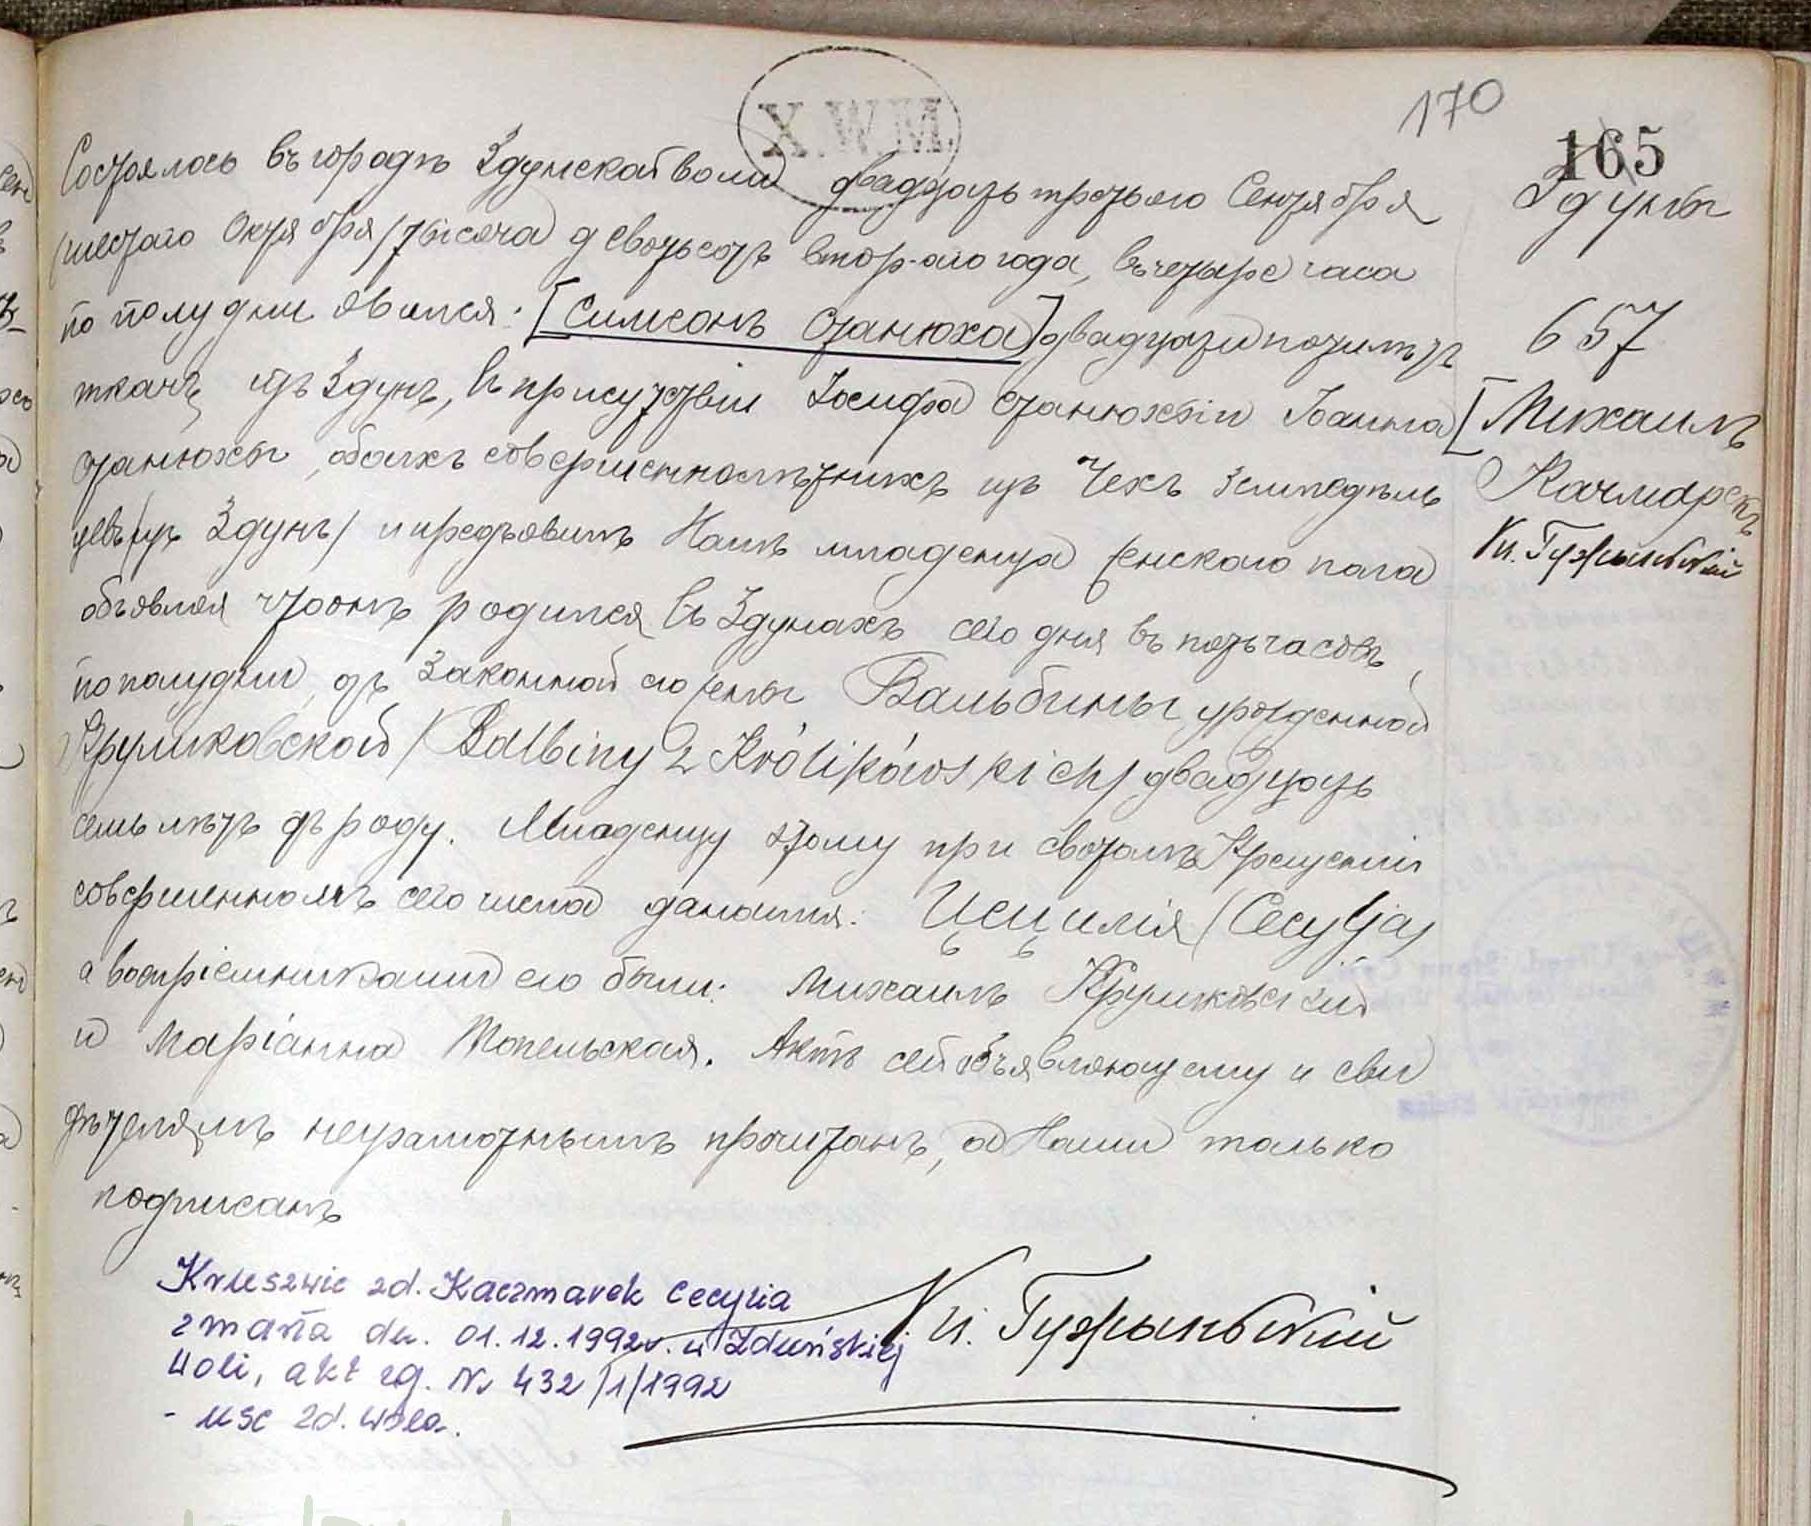 X.W.M.
170
165
Состоялось въ городѣ Здунской воли двадцать третьяго Сентября
/шестаго Октября/ тысяча девятьсотъ второго года, въ четыре часа
по полудни явился: [Симеонъ Станюха] двадцати пяти лѣтъ
ткачъ изъ Здунъ, въ присутствіи Іосифа Станюхи и Іоанна
Станюхи, обоихъ совершеннолѣтнихъ изъ Чехъ земледѣль
цевъ /изъ Здунъ/ и предъявилъ Намъ младенца женскаго пола
объявляя что онъ родился въ Здунахъ сего дня въ пять часовъ
по полудни, отъ законной его жены Бальбины урожденной
Круликовской /Balbiny z Królikowskich/ двадцать
семь лѣтъ отъ роду. Младенцу этому при святомъ Крещеніи
совершенномъ сего числа дано имя: Цецилія /Cecylja/
а воспріемниками его были: Михаилъ Круликовскій
и Маріанна Топельская. Актъ сей объявляющему и сви
дѣтелямъ неграмотнымъ прочитанъ, а Нами только
подписанъ
Здуны
657
[Михаилъ
Качмарекъ
Кс. Гужиньскій
Кс. Гужиньскій
zd. Kaczmarek Cecylia
zmarła dn. 01.12.1992r. w Zduńskiej
Woli, akt zg. Nr 432/1/1992
- USC Zd. Wola.